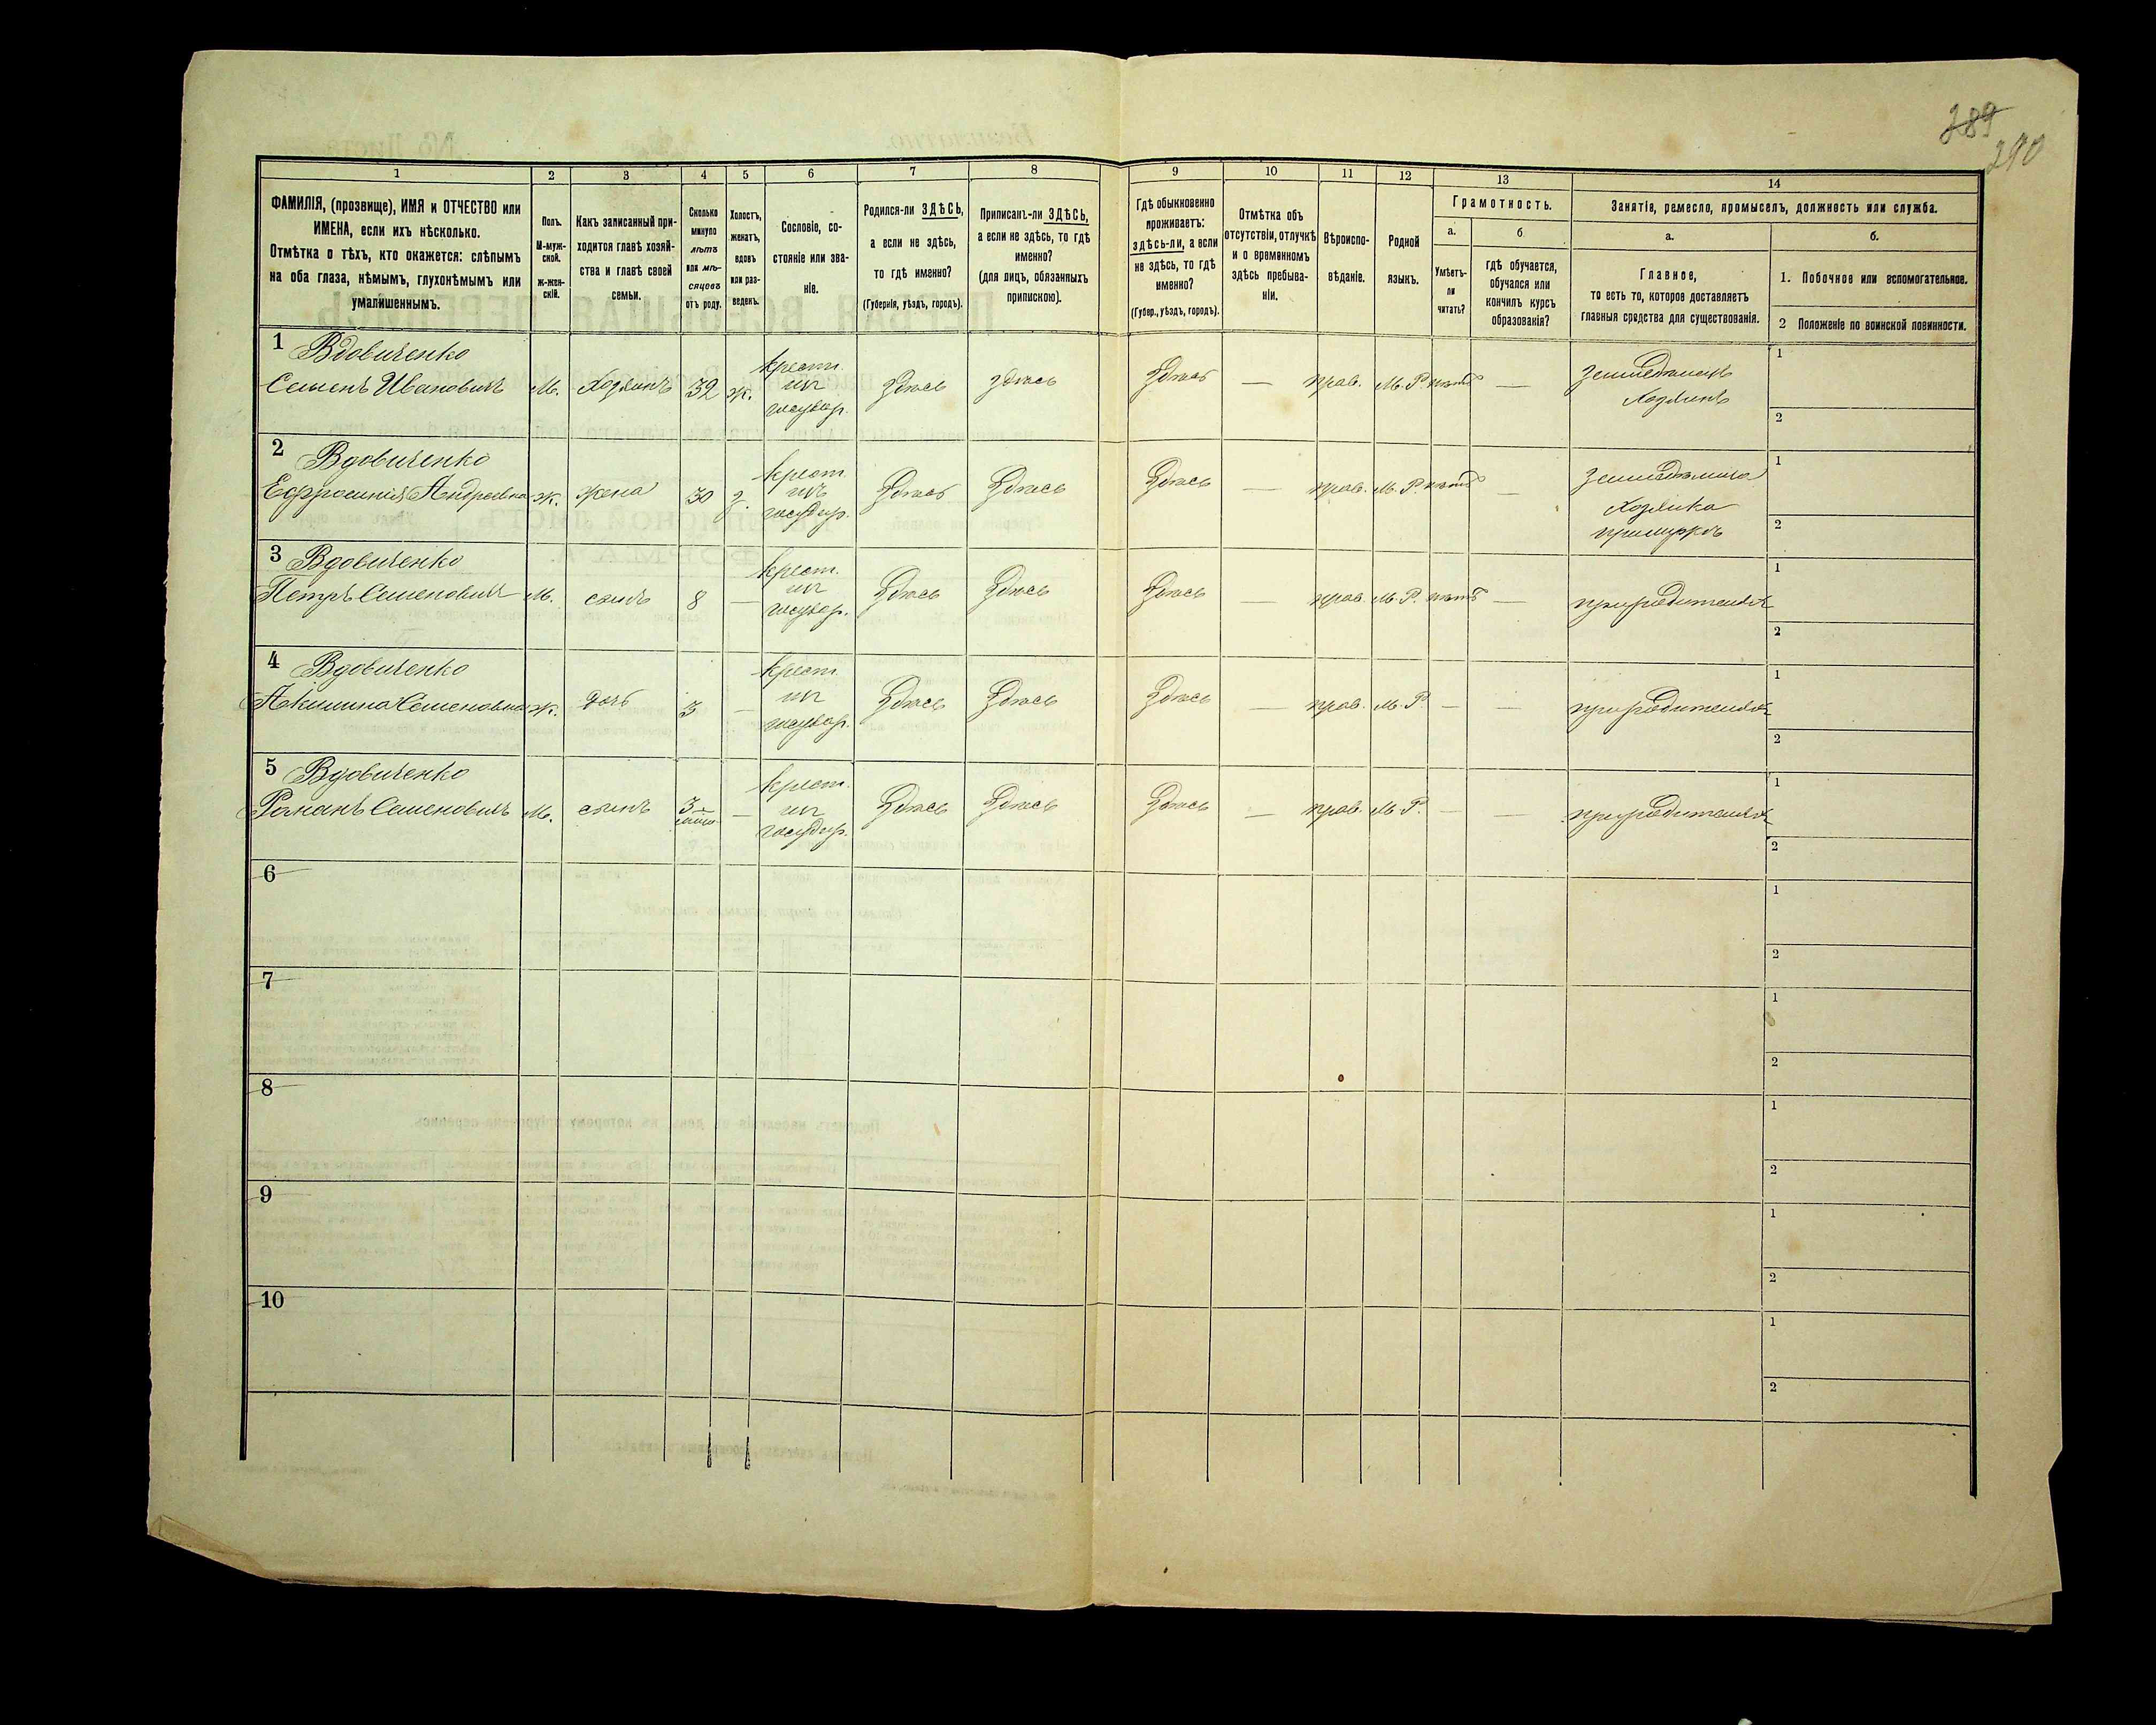 289
290
1
2
3
4
5
6
7
8
9
10
11
12
13
14
ФАМИЛІЯ, (прозвище), ИМЯ и ОТЧЕСТВО или
ИМЕНА, если ихъ нѣсколько.
Отмѣтка о тѣхъ, кто окажется: слѣпымъ
на оба глаза, нѣмымъ, глухонѣмымъ или
умалишеннымъ.
Полъ.
М-муж-
ской.
Ж-жен-
скій.
Какъ записанный при-
ходится главѣ хозяй-
ства и главѣ своей
семьи.
Сколько
минуло
лѣтъ
или мѣ-
сяцовъ
отъ роду.
Холостъ,
женатъ,
вдовъ
или раз-
веденъ.
Сословіе, со-
стояніе или зва-
ніе.
Родился-ли ЗДѢСЬ,
а если не здѣсь,
то гдѣ именно?
(Губернія, уѣздъ, городъ).
Приписанъ-ли ЗДѢСЬ,
а если не здѣсь, то гдѣ
именно?
(для лицъ, обязанныхъ
припискою).
Гдѣ обыкновенно
проживаетъ:
здѣсь-ли, а если
не здѣсь, то гдѣ
именно?
(Губер., уѣздъ, городъ).
Отмѣтка объ
отсутствіи, отлучкѣ
и о временномъ
здѣсь пребыва-
ніи.
Вѣроиспо-
вѣданіе.
Родной
языкъ.
Грамотность.
а.
Умѣетъ-
ли
читать?
б
гдѣ обучается,
обучался или
кончилъ курсъ
образованія?
Занятіе, ремесло, промыселъ, должность или служба.
а.
Главное,
то есть то, которое доставляетъ
главныя средства для существованія.
б.
1. Побочное или вспомогательное.
2 Положеніе по воинской повинности.
1 Вдовиченко
Семенъ Ивановичъ М. Хозяинъ 32 ж. крест. изъ государ. здѣсь здѣсь здѣсь — прав. М. Р. нѣтъ — земледѣлецъ
Хозяинъ
1
2
2 Вдовиченко
Ефросинія Андреевна ж. жена 30 з. крест. изъ государ. здѣсь здѣсь здѣсь — прав. М. Р. нѣтъ —
Хозяйка
при мужѣ
1
2
3 Вдовиченко
Петръ Семеновичъ М. сынъ 8 — крест. изъ государ. здѣсь здѣсь здѣсь — прав. М. Р. нѣтъ — при родителяхъ
1
2
4 Вдовиченко
Акилина Семеновна ж. дочь 3 — крест. изъ государ. здѣсь здѣсь здѣсь — прав. М. Р — — при родителяхъ
1
2
5 Вдовиченко
Романъ Семеновичъ М. сынъ 3 — крест. изъ государ. здѣсь здѣсь здѣсь — прав. М. Р. — — при родителяхъ
1
2
6
1
2
7
1
2
8
1
2
9
1
2
10
1
2